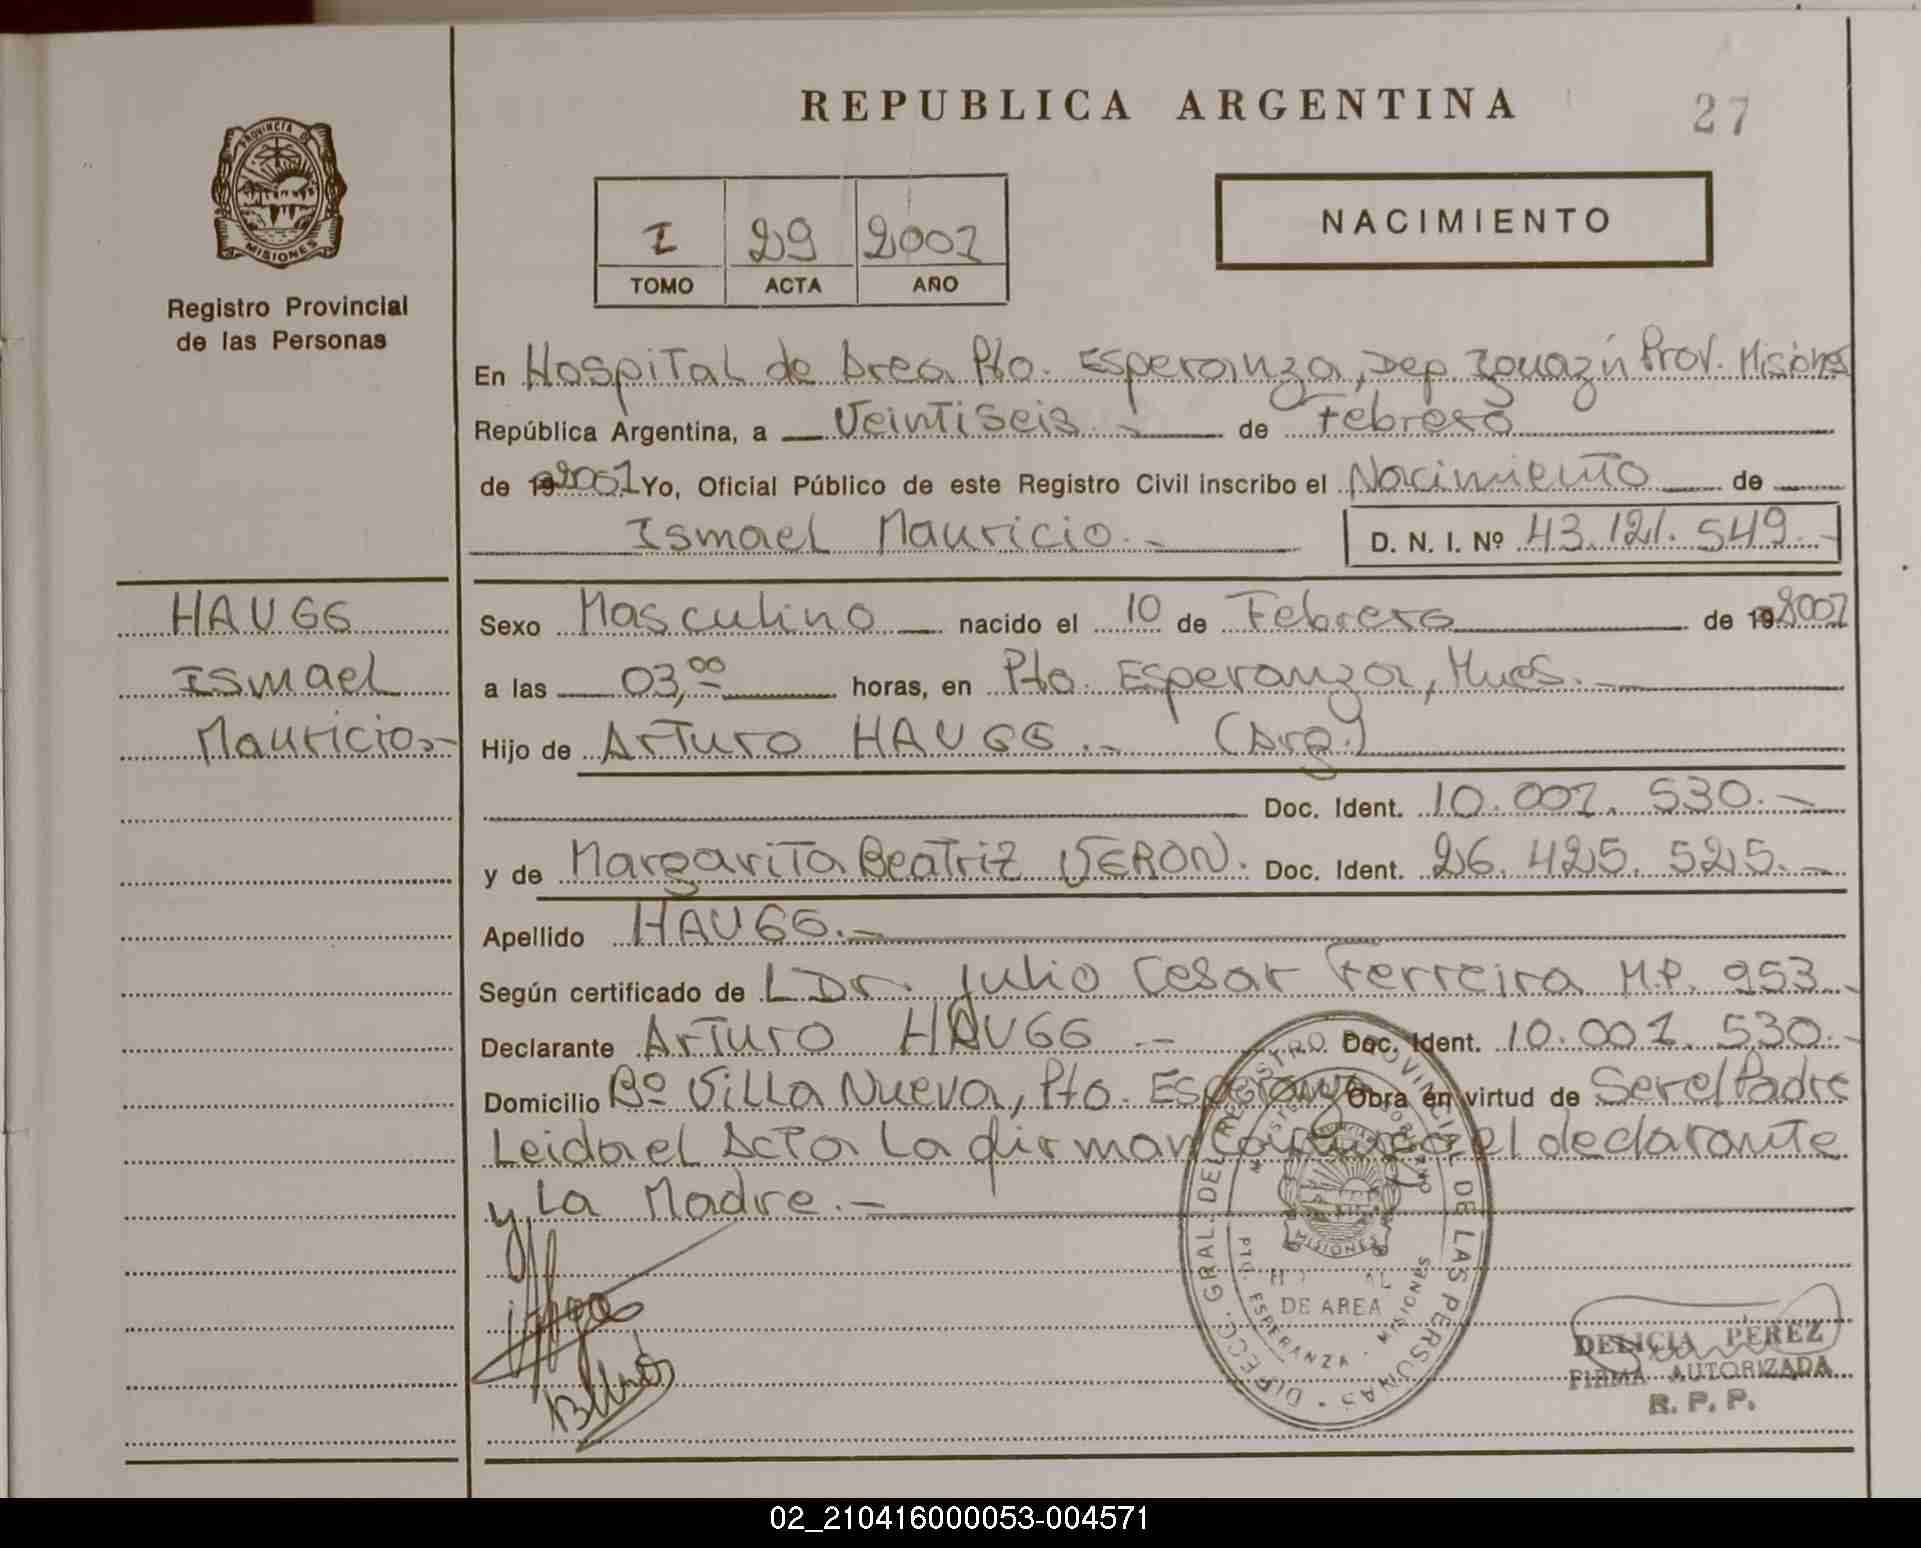 REPUBLICA ARGENTINA
27
PROVINCIA DE
MISIONES
Registro Provincial
de las Personas
I 29 2001
TOMO ACTA AÑO
NACIMIENTO
En Hospital de Area Pto. Esperanza, Dep. Iguazú Prov. Misiones
República Argentina, a Veintiseis.- de Febrero
de 19 2001 Yo, Oficial Público de este Registro Civil inscribo el Nacimiento de
Ismael Mauricio.- D. N. I. Nº 43.121.549.-
HAUGG
Ismael
Mauricio.-
Sexo Masculino nacido el 10 de Febrero de 19 2001
a las 03,00 horas, en Pto. Esperanza, Mnes.-
Hijo de Arturo HAUGG.- (Arg.)
Doc. Ident. 10.001.530.-
y de Margarita Beatriz VERON. Doc. Ident. 26.425.525.-
Apellido HAUGG.-
Según certificado de L Dr. Julio Cesar Ferreira M.P. 953.-
Declarante Arturo HAUGG.- Doc. Ident. 10.001.530.-
Domicilio Bº Villa Nueva, Pto. Esperanza Obra en virtud de Ser el Padre
Leida el Acta La firman Conmigo el declarante
y La Madre.-
DIRECC. GRAL. DEL REGISTRO PROVINCIAL DE LAS PERSONAS
MISIONES
DE AREA
PTO. ESPERANZA - MISIONES
DELICIA PEREZ
FIRMA AUTORIZADA
R. P. P.
02_210416000053-004571